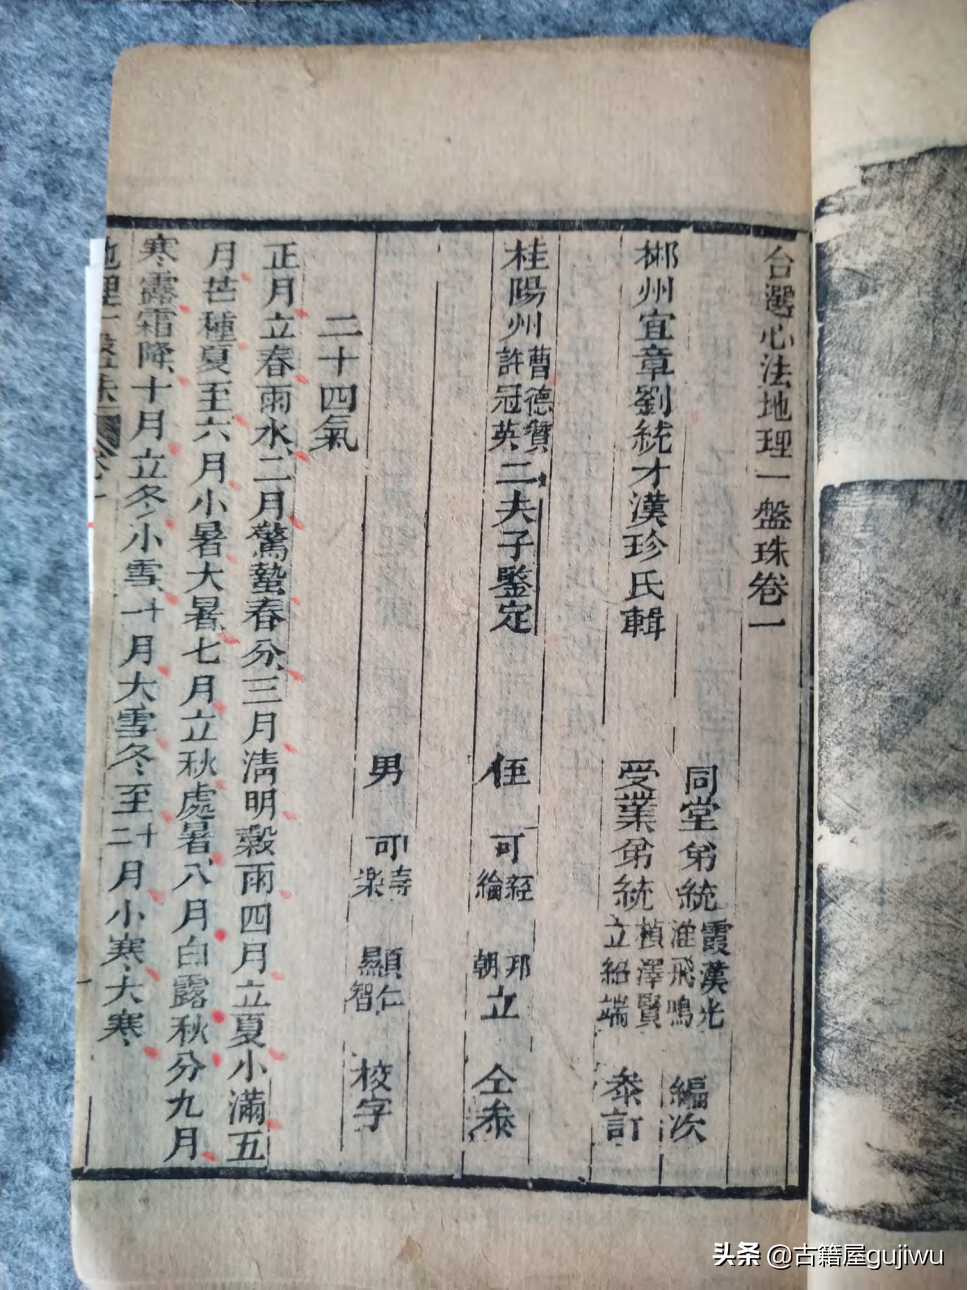 台選心法地理一盤珠卷一
同堂弟統霞漢光淮飛鳴編次
郴州宜章劉統才漢珍氏輯
受業弟統楨澤賢立紹端叅訂
桂陽州曹德贊許冠英二夫子鑒定
侄可經綸邦朝立仝叅
男可壽樂顯仁智校字
二十四氣
正月立春雨水二月驚蟄春分三月清明穀雨四月立夏小滿五
月芒種夏至六月小暑大暑七月立秋處暑八月白露秋分九月
寒露霜降十月立冬小雪十一月大雪冬至十二月小寒大寒
地理一盤珠 卷一
头条 @古籍屋gujiwu